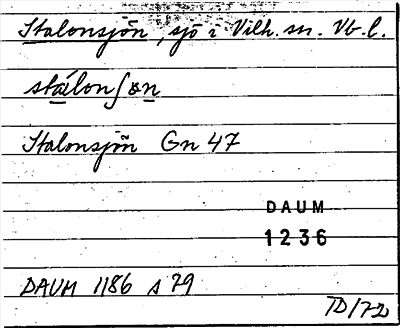 Stalonsjön, sjö i Vilh. sn. Vb. l.
stálonʃøn
Stalonsjön Gn 47
DAUM
1236
DAUM 1186 s 79
TD/72